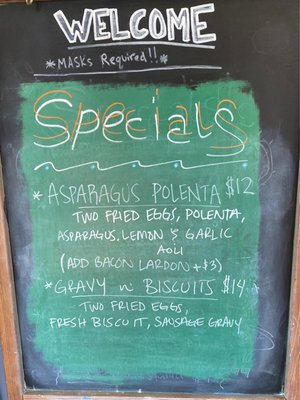 WELCOME
*MASKS Required!!*
Specials
*ASPARAGUS POLENTA $12
TWO FRIED EGGS, POLENTA,
ASPARAGUS, LEMON & GARLIC
AOLI
(ADD BACON LARDON +$3)
*GRAVY n' BISCUITS $14
TWO FRIED EGGS,
FRESH BISCUIT, SAUSAGE GRAVY